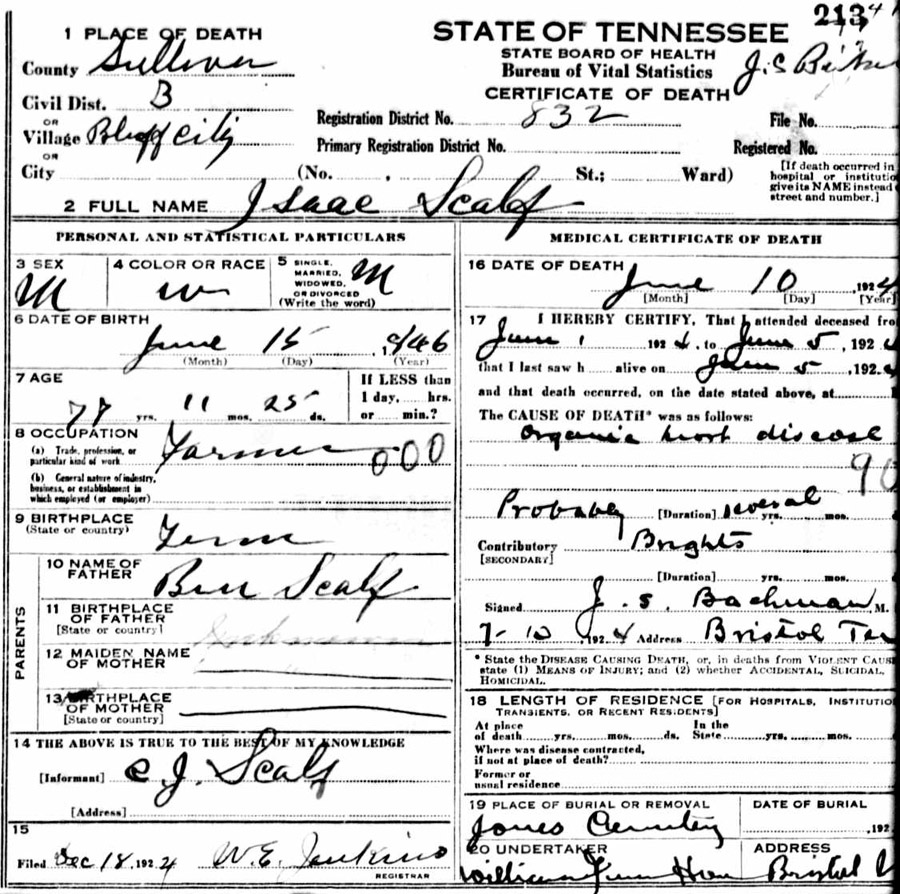 213
STATE OF TENNESSEE
STATE BOARD OF HEALTH
Bureau of Vital Statistics
CERTIFICATE OF DEATH
1 PLACE OF DEATH
County Sullivan
Civil Dist. 3
OR
Village Bluff City
OR
City
Registration District No. 832
Primary Registration District No.
File No.
Registered No.
(No. , St.; Ward)
[If death occurred in
hospital or institutio
give its NAME instead
street and number.]
2 FULL NAME Isaac Scalf
PERSONAL AND STATISTICAL PARTICULARS
3 SEX M
4 COLOR OR RACE W
5 SINGLE, MARRIED, WIDOWED, OR DIVORCED (Write the word) M
6 DATE OF BIRTH
June 15, 1846
(Month) (Day) (Year)
7 AGE
77 yrs. 11 mos. 25 ds.
If LESS than
1 day,.... hrs.
or .... min.?
8 OCCUPATION
(a) Trade, profession, or
particular kind of work Farmer 000
(b) General nature of industry,
business, or establishment in
which employed (or employer)
9 BIRTHPLACE
(State or country) Tenn
PARENTS
10 NAME OF
FATHER Ben Scalf
11 BIRTHPLACE
OF FATHER
[State or country] Unknown
12 MAIDEN NAME
OF MOTHER
13 BIRTHPLACE
OF MOTHER
[State or country]
14 THE ABOVE IS TRUE TO THE BEST OF MY KNOWLEDGE
[Informant] C. J. Scalf
[Address]
15
Filed Dec 18, 1924 W. E. Jenkins
REGISTRAR
MEDICAL CERTIFICATE OF DEATH
16 DATE OF DEATH
June 10 , 1924
[Month] [Day] [Year]
17 I HEREBY CERTIFY, That I attended deceased fro
June 1 1924, to June 5, 192
that I last saw h alive on June 5, 192
and that death occurred, on the date stated above, at
The CAUSE OF DEATH* was as follows:
Organic heart disease
90
Probably [Duration] several yrs. mos.
Contributory Brights
[SECONDARY]
[Duration] yrs. mos.
Signed J. S. Bachman M.
7-10 1924 Address Bristol
* State the DISEASE CAUSING DEATH, or, in deaths from VIOLENT CAUS
state (1) MEANS OF INJURY; and (2) whether ACCIDENTAL, SUICIDAL,
HOMICIDAL.
18 LENGTH OF RESIDENCE [FOR HOSPITALS, INSTITUTIO
TRANSIENTS, OR RECENT RESIDENTS]
At place
of death yrs. mos. ds.
In the
State yrs. mos.
Where was disease contracted,
if not at place of death?
Former or
usual residence
19 PLACE OF BURIAL OR REMOVAL
Jones Cemetery
DATE OF BURIAL
, 192
20 UNDERTAKER
ADDRESS
Bristol